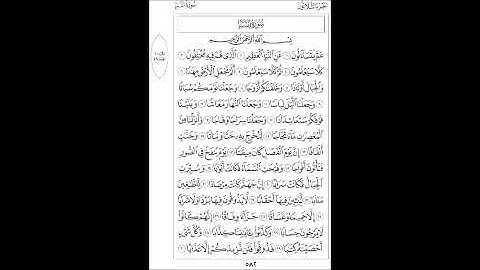 الجزء الثلاثون سورة النبإ
سورة النبإ
بسم الله الرحمن الرحيم
عم يتساءلون ١ عن النبإ العظيم ٢ الذي هم فيه مختلفون ٣
كلا سيعلمون ٤ ثم كلا سيعلمون ٥ ألم نجعل الأرض مهادا ٦
والجبال أوتادا ٧ وخلقناكم أزواجا ٨ وجعلنا نومكم سباتا ٩
وجعلنا الليل لباسا ١٠ وجعلنا النهار معاشا ١١ وبنينا
فوقكم سبعا شدادا ١٢ وجعلنا سراجا وهاجا ١٣ وأنزلنا من
المعصرات ماء ثجاجا ١٤ لنخرج به حبا ونباتا ١٥ وجنات
ألفافا ١٦ إن يوم الفصل كان ميقاتا ١٧ يوم ينفخ في الصور
فتأتون أفواجا ١٨ وفتحت السماء فكانت أبوابا ١٩ وسيرت
الجبال فكانت سرابا ٢٠ إن جهنم كانت مرصادا ٢١ للطاغين
مآبا ٢٢ لابثين فيها أحقابا ٢٣ لا يذوقون فيها بردا ولا شرابا
٢٤ إلا حميما وغساقا ٢٥ جزاء وفاقا ٢٦ إنهم كانوا
لا يرجون حسابا ٢٧ وكذبوا بآياتنا كذابا ٢٨ وكل شيء
أحصيناه كتابا ٢٩ فذوقوا فلن نزيدكم إلا عذابا ٣٠
٥٨٢